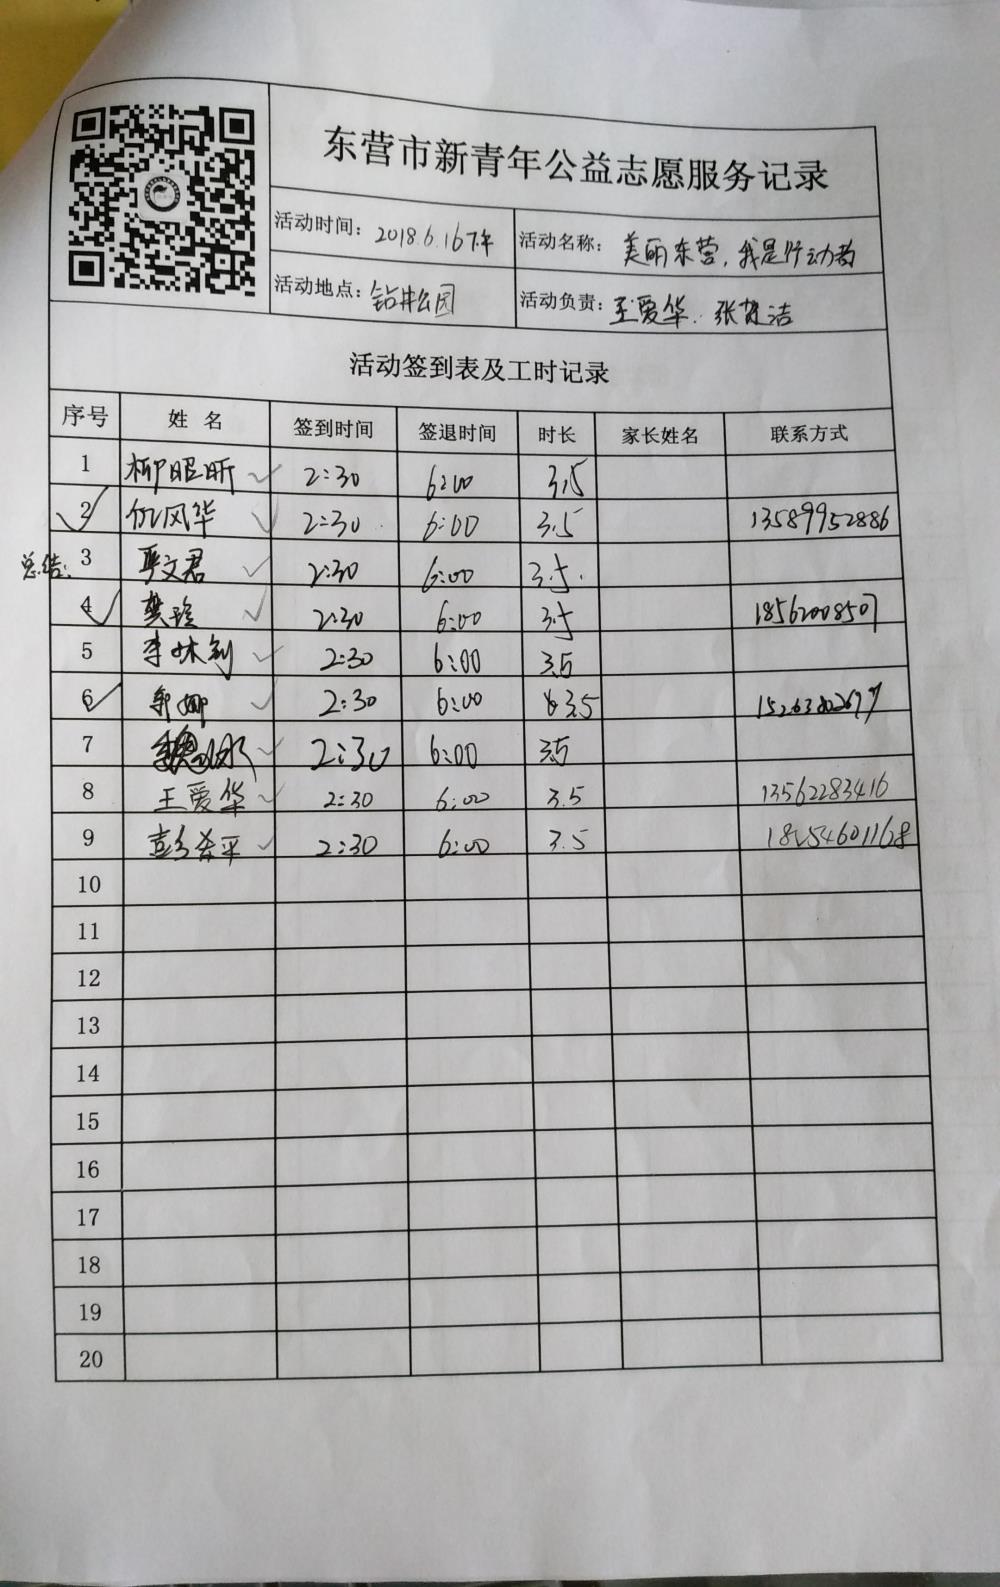 东营市新青年公益志愿服务记录
活动时间： 2018.6.16下午 活动名称： 美丽东营，我是行动者
活动地点： 钻井公园 活动负责： 王爱华. 张梦洁
活动签到表及工时记录
序号 姓 名 签到时间 签退时间 时长 家长姓名 联系方式
1 柳昭昕 2:30 6:00 3.5
2 风华 2:30 6:00 3.5 13589952886
总结： 3 文君 2:30 6:00 3.5.
4 樊玲 2:30 6:00 3.5 18562008507
5 李林钊 2:30 6:00 3.5
6 郭娜 2:30 6:00 3.5
7 2:30 6:00 3.5
8 王爱华 2:30 6:00 3.5 13562283416
9 彭希平 2:30 6:00 3.5 18254601168
10
11
12
13
14
15
16
17
18
19
20